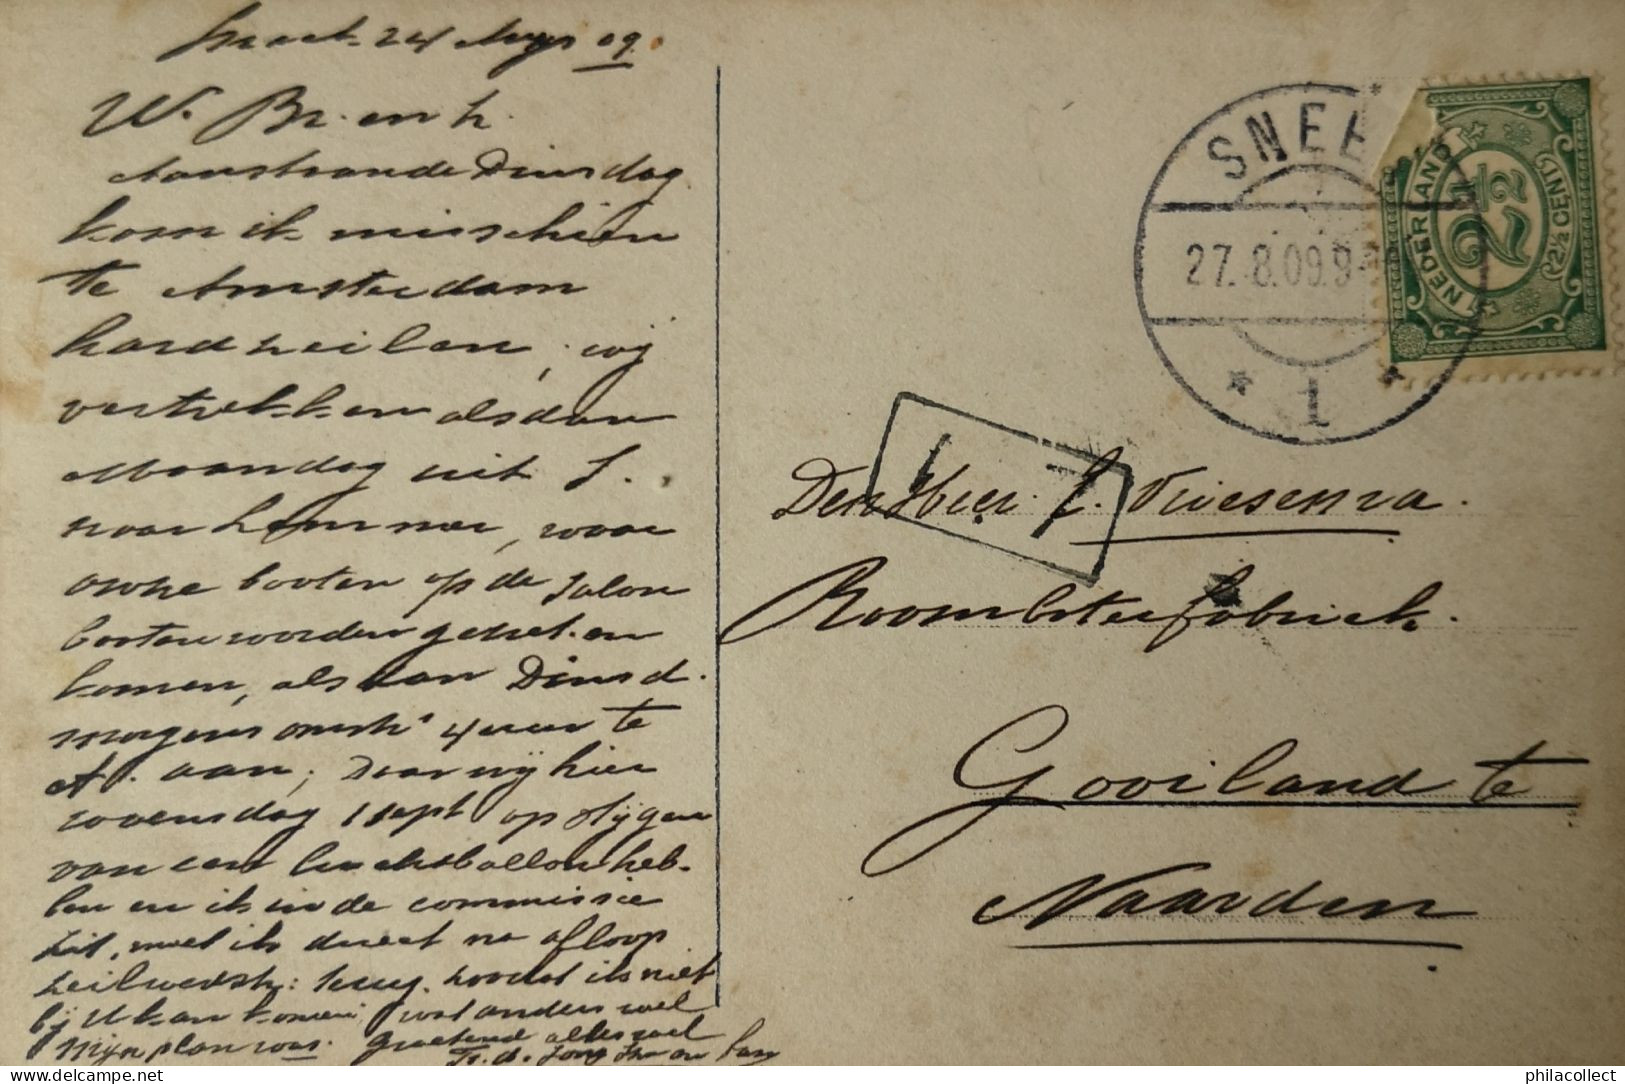 Sneek 24 Aug 09.
W. Br. en Z.
Aanstaande Dinsdag
kom ik misschien
te Amsterdam
hardzeilen, wij
vertrekken alsdan
Maandag uit S.
naar Lemmer, waar
onze booten op de salon
booten worden gezet en
komen, als dan Dinsd.
morgens omstr. 4 uur te
A. aan, Daar wij hier
woensdag 1 Sept op stijgen
van een luchtballon heb-
ben en ik in de commissie
zit, moet ik direct na afloop
zeilwedstr: terug. zoodat ik niet
bij U kan komen, wat anders wel
Mijn plan was. Groetend alles wel
Fr. d. Jong
SNEEK
27. 8. 09. 9
1
NEDERLAND
2½
2½ CENT
1
Den Heer Vriesenza.
Roomboterfabriek.
Gooiland te
Naarden
philacollect
www.delcampe.net